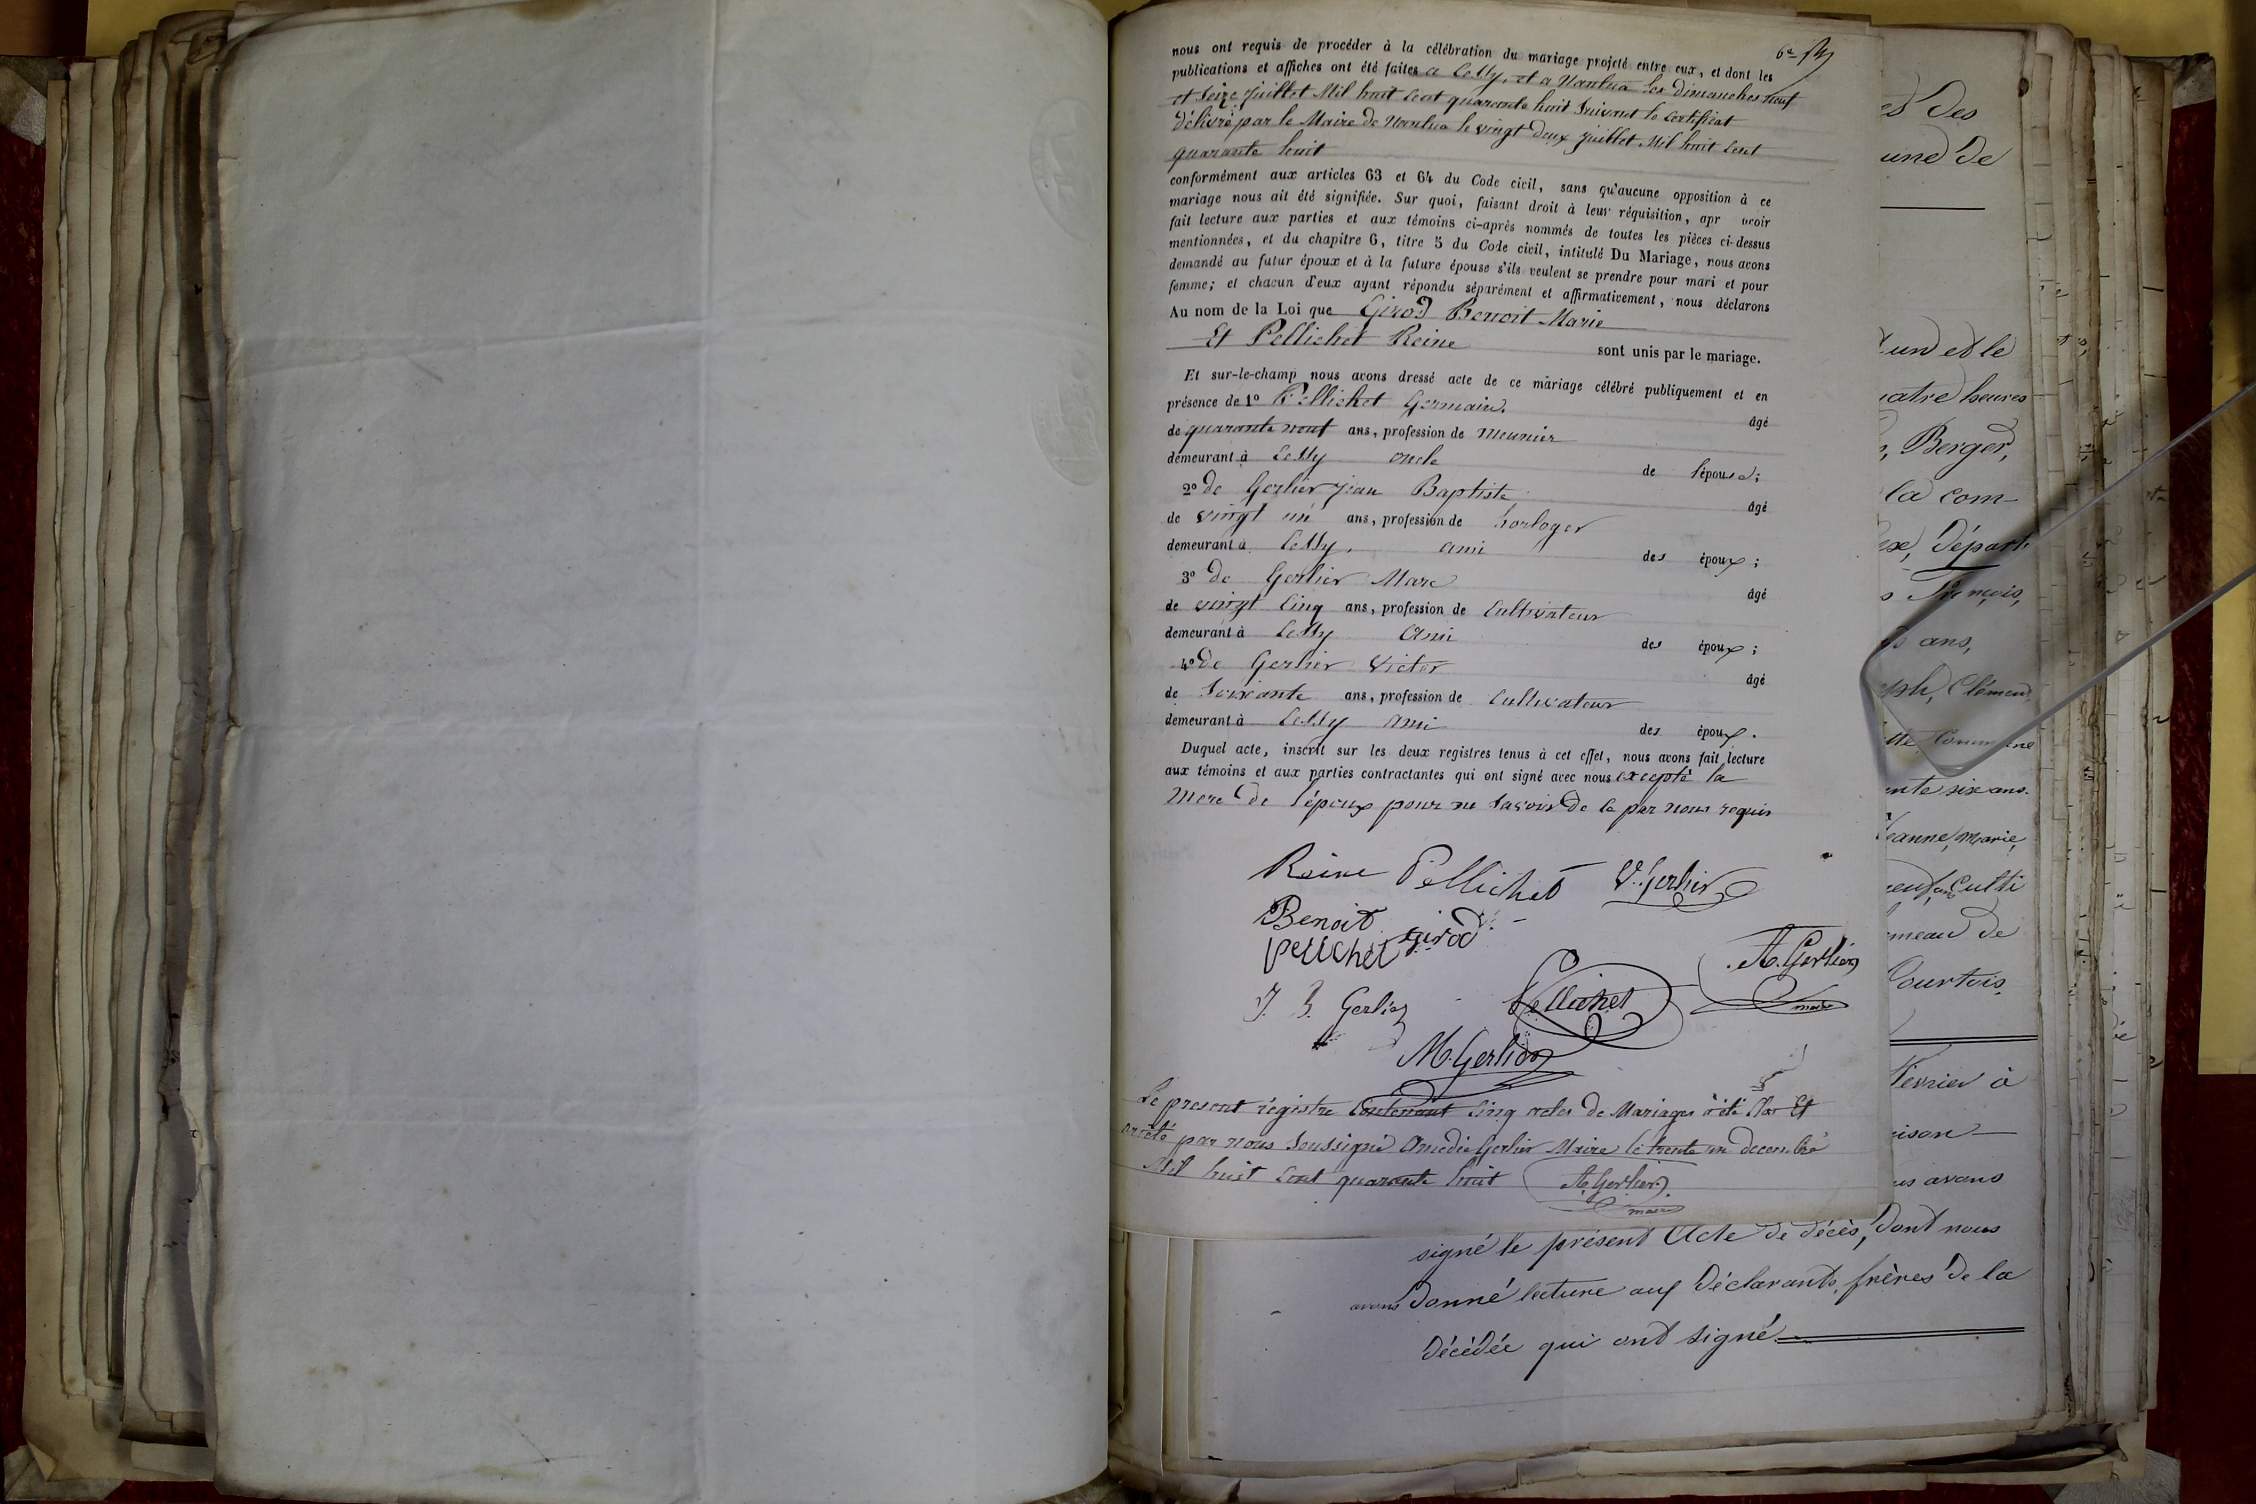 6e
nous ont requis de procéder à la célébration du mariage projeté entre eux, et dont les
publications et affiches ont été faites a Cessy, et a Nantua les Dimanches neuf
et Seize juillet Mil huit Cent quarante huit Suivant le Certificat
Délivré par le Maire de Nantua le vingt Deux juillet Mil huit Cent
quarante huit
conformément aux articles 63 et 64 du Code civil, sans qu'aucune opposition à ce
mariage nous ait été signifiée. Sur quoi, faisant droit à leur réquisition, apr voir
fait lecture aux parties et aux témoins ci-après nommés de toutes les pièces ci-dessus
mentionnées, et du chapitre 6, titre 5 du Code civil, intitulé Du Mariage, nous avons
demandé au futur époux et à la future épouse s'ils veulent se prendre pour mari et pour
femme; et chacun d'eux ayant répondu séparément et affirmativement, nous déclarons
Au nom de la Loi que Girod Benoit Marie
Et Pellichet Reine sont unis par le mariage.
Et sur-le-champ nous avons dressé acte de ce mariage célébré publiquement et en
présence de 1o Pellichet Germain, âgé
de quarante neuf ans, profession de meunier
demeurant à Cessy oncle de l'épouse;
2o De Gerlier jean Baptiste âgé
de vingt un ans, profession de horloger
demeurant à Cessy, ami des époux;
3o De Gerlier Marc âgé
de vingt Cinq ans, profession de Cultivateur
demeurant à Cessy Ami des époux;
4o De Gerlier Victor âgé
de Soixante ans, profession de Cultivateur
demeurant à Cessy Ami des époux.
Duquel acte, inscrit sur les deux registres tenus à cet effet, nous avons fait lecture
aux témoins et aux parties contractantes qui ont signé avec nous excepté la
Mere De l'époux pour ne Savoir De ce par nous requis
Reine Pellichet V. Gerlier
Benoit Girod
Pellichet A. Gerlier
maire
J. B. Gerlier Pellichet
M. Gerlier
Le present régistre Contenant Cinq actes De Mariages à été Clos Et
arrêté par nous Soussigné Amedée Gerlier Maire le trente un decembre
Mil huit Cent quarante huit A. Gerlier
maire
es Des
une De
un et le
uatre heures
Berger,
la com-
ex, Départ
François,
ans,
Clémen
Commune
ente six ans.
Jeanne, Marie,
Culti
meau de
Courtois,
février à
aison
us avons
signé le présent Acte de décès, Dont nous
avons Donné lecture aux Déclarants, frères De la
Décédée qui ont signé.